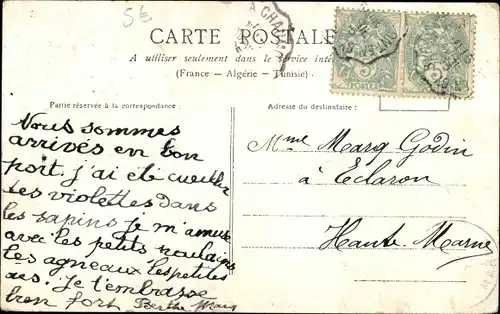 CARTE POSTALE
A utiliser seulement dans le service
(France - Algérie - Tunisie)
Partie réservée à la correspondance :
Adresse du destinataire :
Nous sommes
arrivés en bon
port. j'ai été cueillir
des violettes dans
les sapins je m'amuse
avec les petits poulains
les agneaux les petites
oies. Je t'embrasse
bien fort Berthe Marq
Mme Marq Godin
à Eclaron
Haute Marne